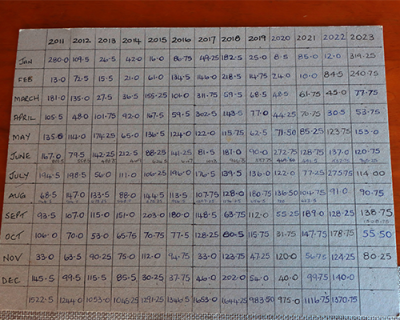 2011 2012 2013 2014 2015 2016 2017 2018 2019 2020 2021 2022 2023
JAN 280.0 109.5 26.5 42.0 16.0 86.75 49.25 182.5 25.0 8.5 85.0 12.0 319.25
FEB 13.0 72.5 15.5 21.0 61.0 134.5 146.0 218.5 14.75 214.0 10.0 84.5 240.75
MARCH 181.0 135.0 27.5 36.5 155.25 101.0 311.75 59.5 68.5 48.5 61.75 45.0 77.75
APRIL 105.5 48.0 101.75 92.0 167.5 59.5 302.5 143.5 77.0 44.25 70.75 30.5 53.75
MAY 135.5 114.0 174.25 65.0 136.5 124.0 122.0 115.75 62.5 71.50 85.25 123.75 153.0
JUNE 167.0 79.5 142.25 212.5 88.25 141.25 81.5 187.0 90.0 272.75 128.75 137.0 120.75
JULY 194.5 198.5 56.0 111.0 106.25 196.0 176.5 139.5 136.0 122.0 77.25 277.75 114.00
AUG 68.5 147.0 133.5 88.0 146.5 113.5 107.75 128.0 150.75 136.50 104.75 91.0 90.75
SEPT 93.5 107.0 115.0 151.0 203.0 180.0 148.5 63.75 112.0 55.25 189.0 128.25 138.75
OCT 106.0 70.0 53.0 65.75 70.75 77.5 128.25 80.5 115.75 31.75 147.75 178.75 55.50
NOV 33.0 63.5 90.25 75.0 112.0 94.75 33.0 123.75 47.25 120.0 56.75 124.25 80.25
DEC 145.5 99.5 115.5 85.5 30.25 37.75 46.0 202.0 54.0 40.0 99.75 140.0
1522.5 1244.0 1053.0 1291.25 1346.5 1653.0 1644.25 983.50 1116.75 1370.75